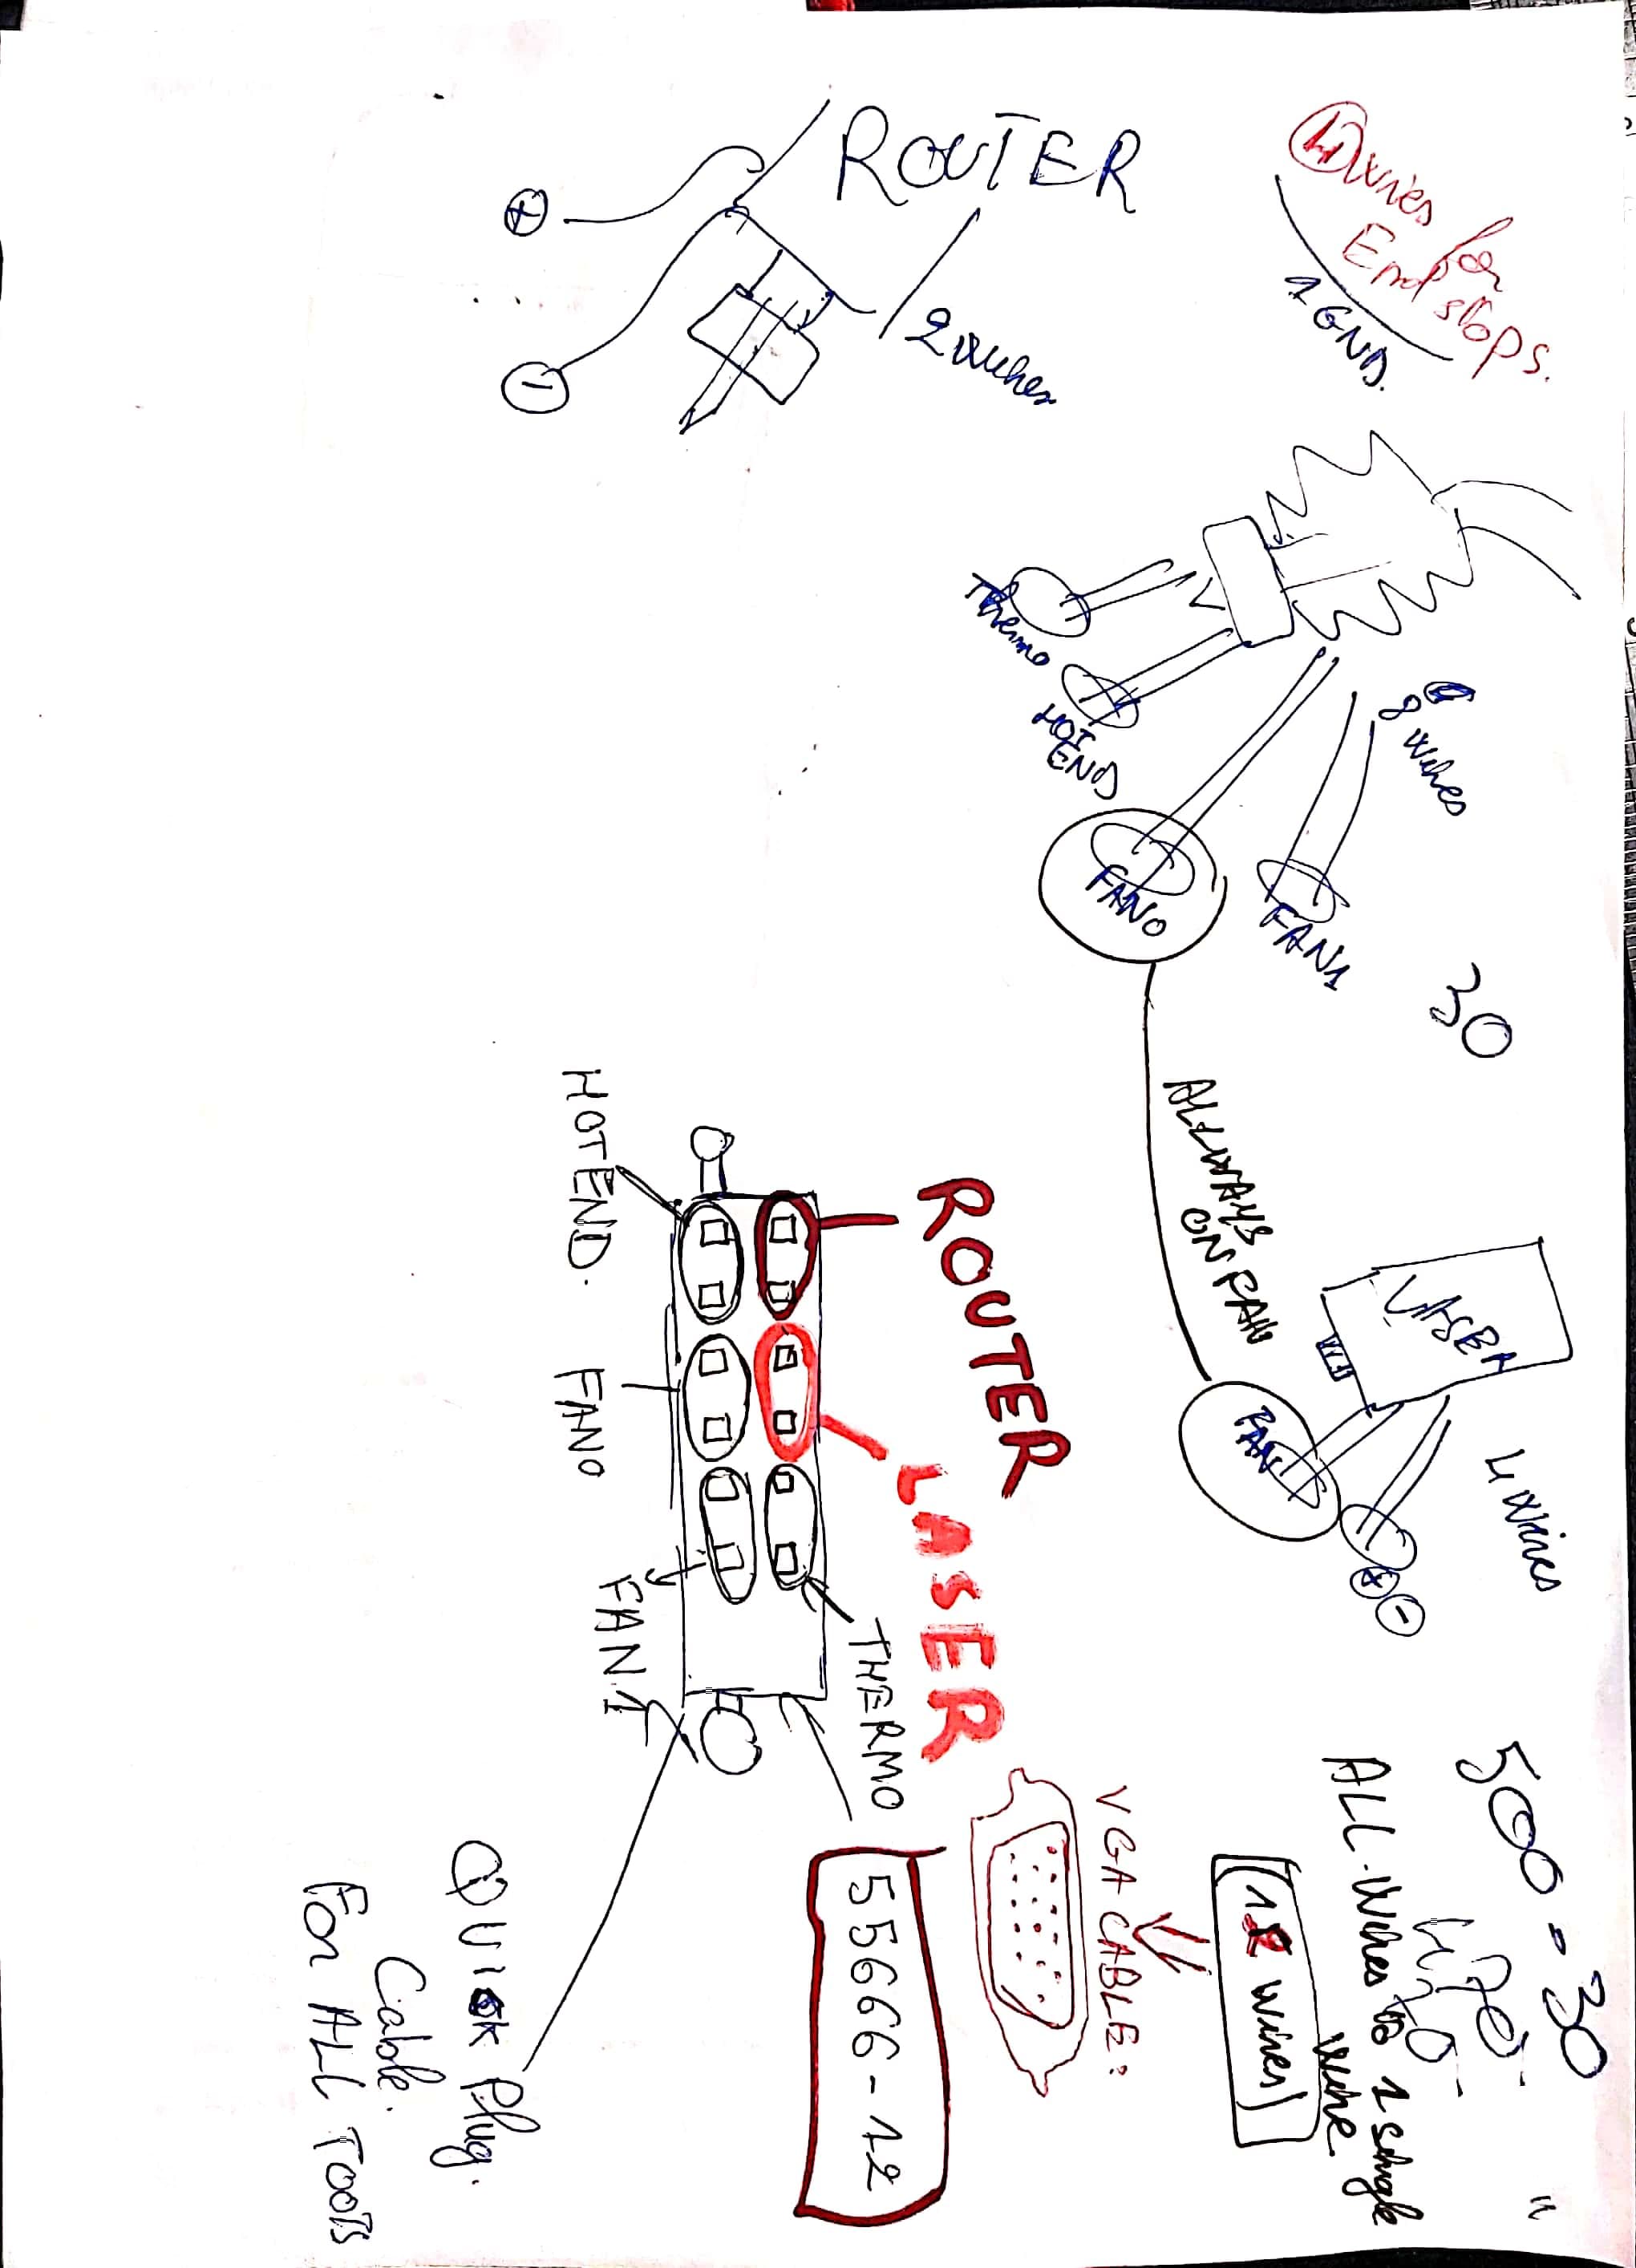 ROUTER
2 wires
+
-
4 wires for
End stops.
1 GND.
8 wires
Thermo
HOT
END
FAN0
FAN1
30
ALLWAYS
ON FAN
LASER
FAN
4 wires
+ -
500 - 30
ALL wires to 1 single
wire
(12 wires)
VGA CABLE:
55666-12
ROUTER
LASER
THERMO
HOTEND.
FAN0
FAN 1
QUICK Plug.
Cable.
For ALL TOOLS